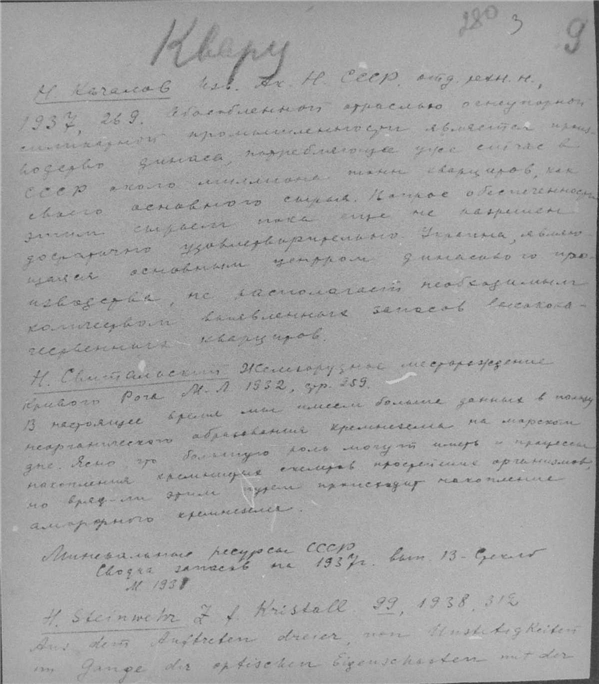 280 3 9
Кварц
Н. Качалов Изв. Ак. Н. СССР. отд. техн. н.,
1937, 269. Обособленной отраслью огнеупорной
силикатной промышленности является произ-
водство динаса, потребляющее уже сейчас в
СССР около миллиона тонн кварцитов, как
своего основного сырья. Вопрос обеспеченности
этим сырьем пока еще не разрешен
достаточно удовлетворительно. Украина, являю-
щаяся основным центром динасового про-
изводства, не располагает необходимым
количеством выявленных запасов высокока-
чественных кварцитов.
Н. Свитальский Железорудное месторождение
Кривого Рога М. Л. 1932, стр. 259.
В настоящее время мы имеем больше данных в пользу
неорганического образования кремнезема на морском
дне. Ясно, что большую роль могут иметь и процессы
накопления кремнистых скелетов простейших организмов,
но вряд-ли этим путем происходит накопление
аморфного кремнезема.
Минеральные ресурсы СССР
Сводка запасов на 1937г. вып. 13 - Стекло
М. 1938
H. Steinwehr Z f. Kristall. 99, 1938, 312
Aus dem Auftreten dreier, von Unstetigkeiten
im Gange der optischen Eigenschaften mit der